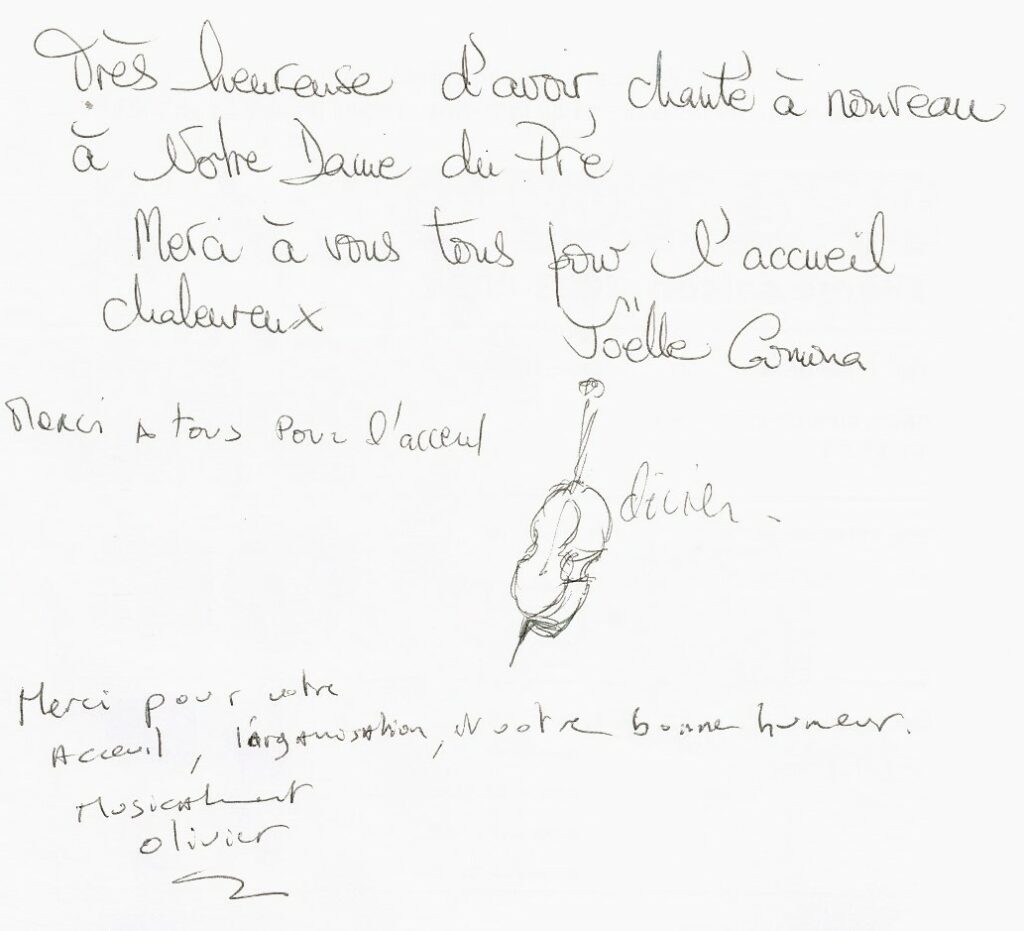 Très heureuse d'avoir chanté à nouveau
à Notre Dame du Pré
Merci à vous tous pour l'accueil
chaleureux
Joëlle Comina
Merci A tous pour l'acceuil
Merci pour votre
Acceuil, l'organisation, et votre bonne humeur.
Musicalement
Olivier